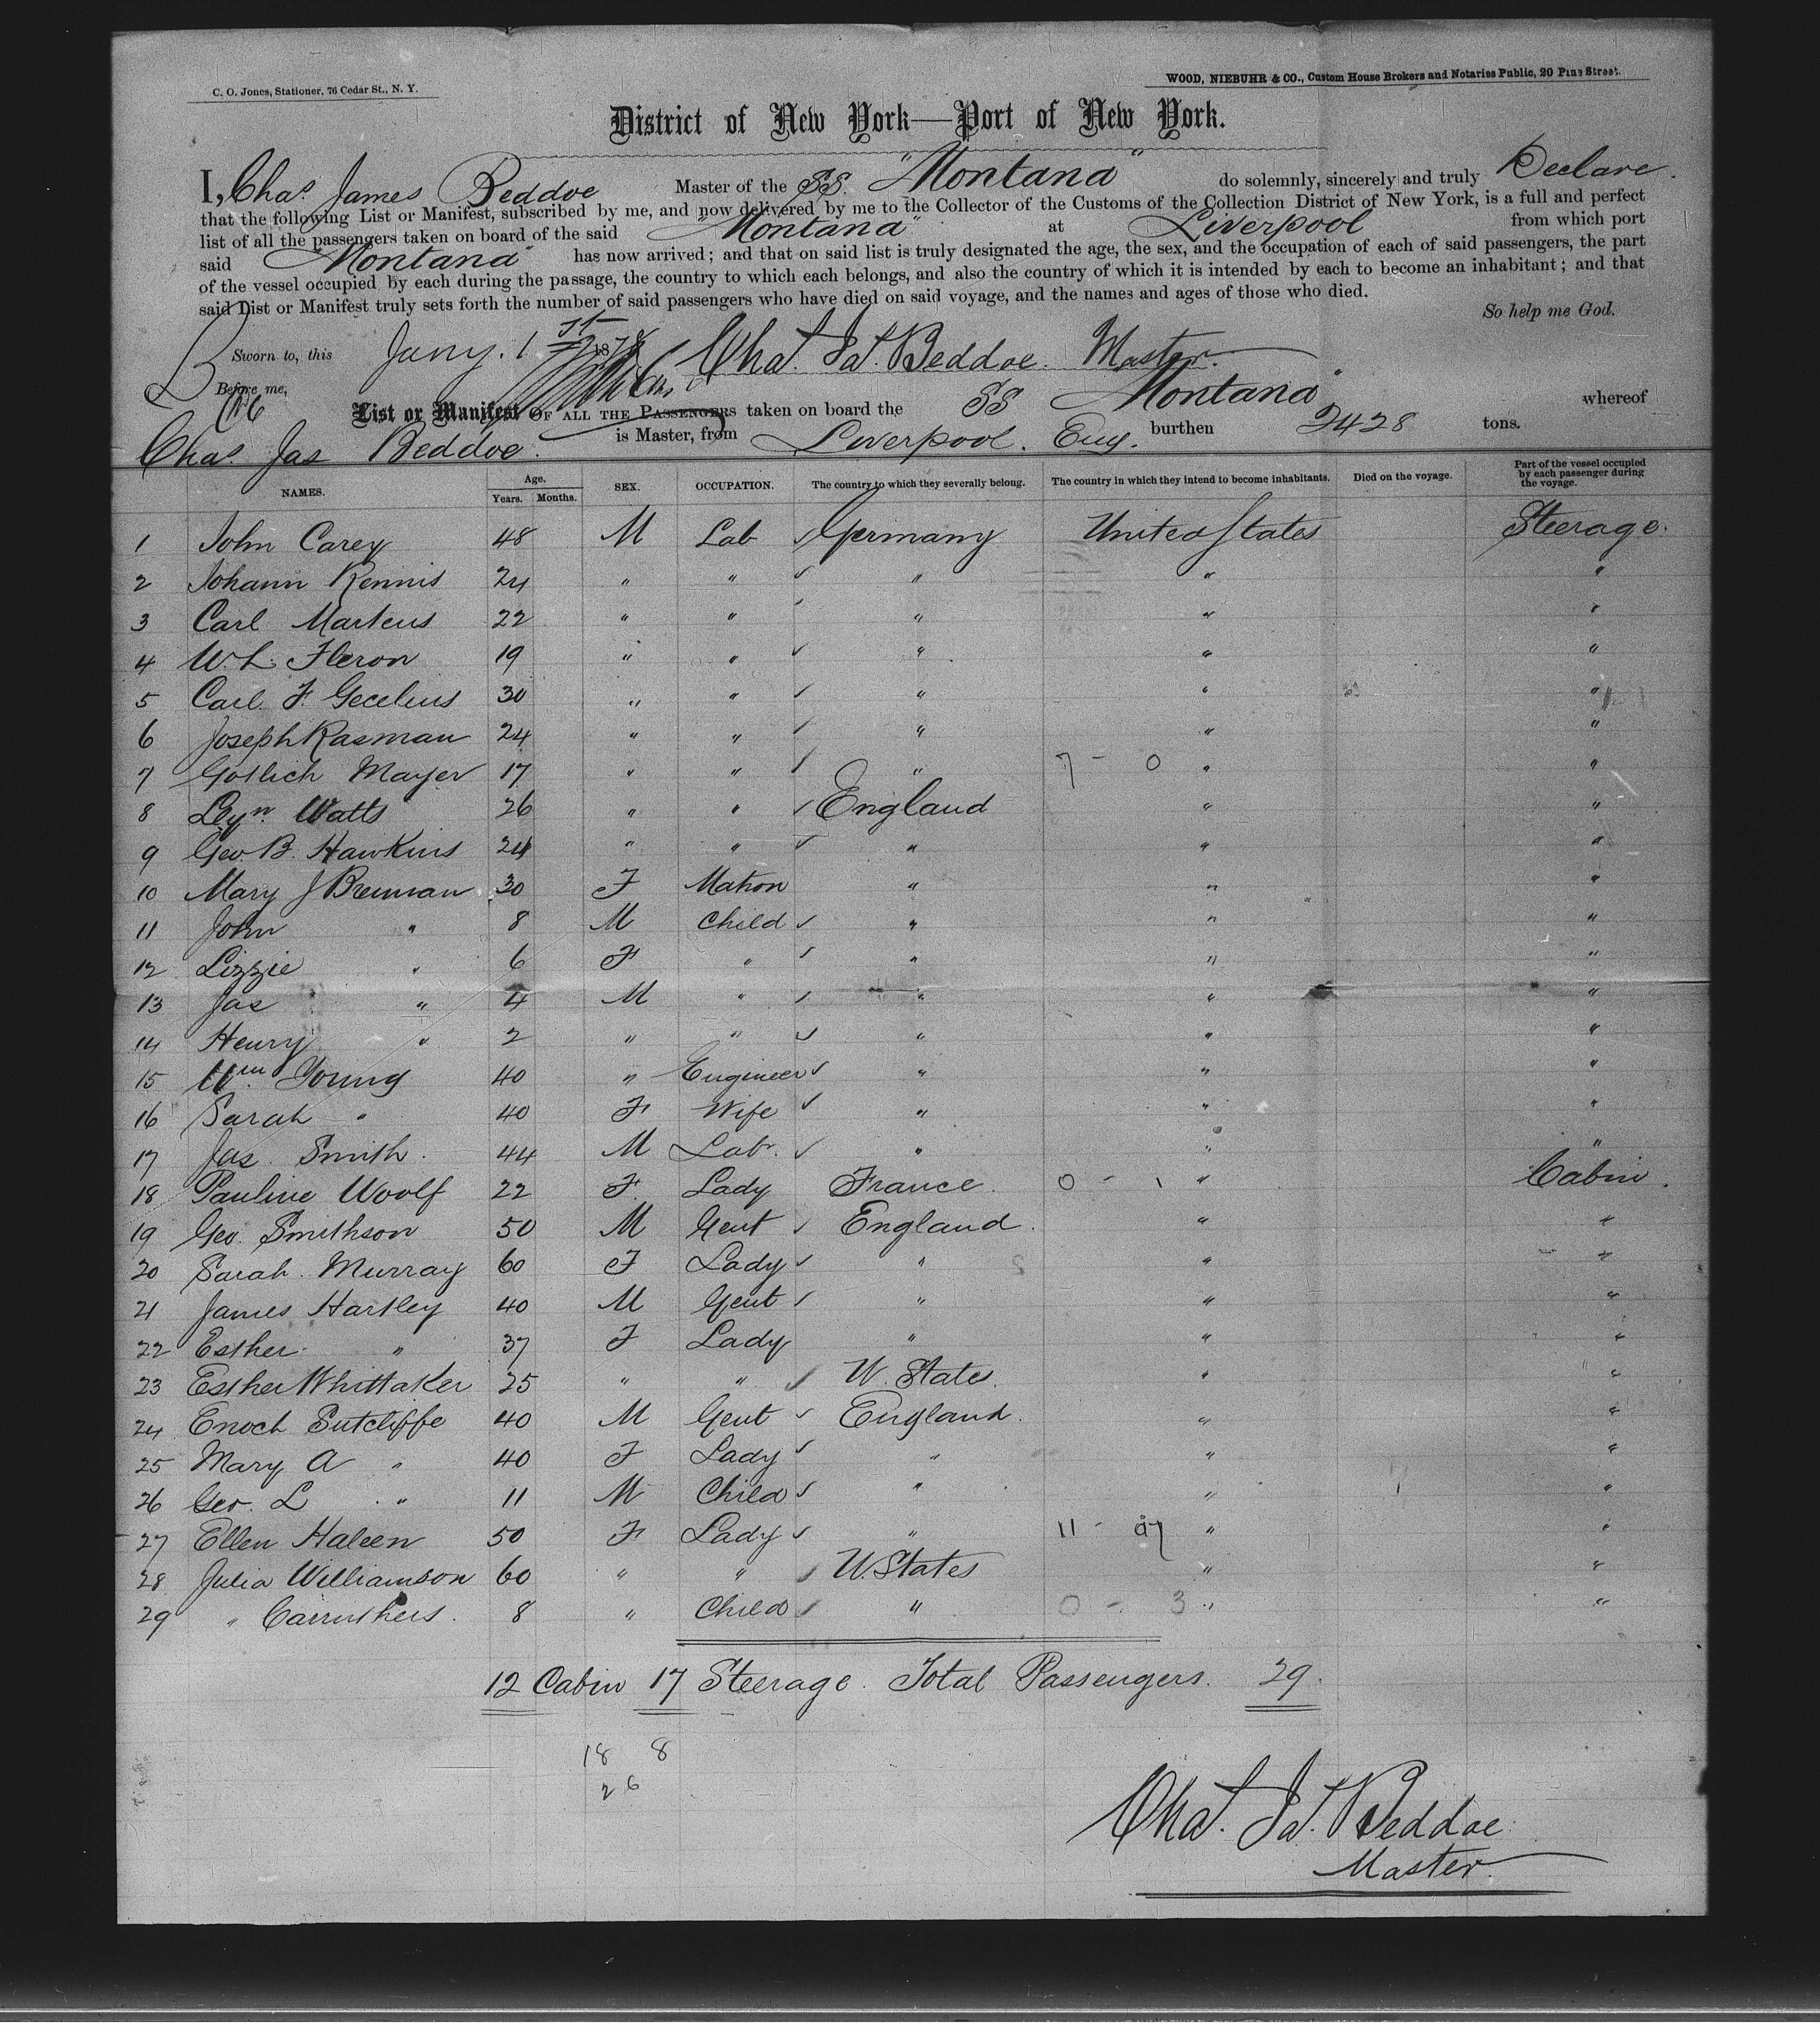 C. O. Jones, Stationer, 76 Cedar St., N. Y.
WOOD, NIEBUHR & CO., Custom House Brokers and Notaries Public, 20 Pine Street.
District of New York—Port of New York.
I, Chas James Beddoe Master of the SS. "Montana" do solemnly, sincerely and truly Declare.
that the following List or Manifest, subscribed by me, and now delivered by me to the Collector of the Customs of the Collection District of New York, is a full and perfect
list of all the passengers taken on board of the said "Montana" at Liverpool from which port
said Montana" has now arrived; and that on said list is truly designated the age, the sex, and the occupation of each of said passengers, the part
of the vessel occupied by each during the passage, the country to which each belongs, and also the country of which it is intended by each to become an inhabitant; and that
said List or Manifest truly sets forth the number of said passengers who have died on said voyage, and the names and ages of those who died.
So help me God.
Sworn to, this Jany. 1st 1878 Chas. Jas. Beddoe. Master.
Before me,
List or Manifest OF ALL THE PASSENGERS taken on board the SS Montana" whereof
Chas Jas Beddoe. is Master, from Liverpool. Eng. burthen 2428 tons.
NAMES. Age. Years. Months. SEX. OCCUPATION. The country to which they severally belong. The country in which they intend to become inhabitants. Died on the voyage. Part of the vessel occupied by each passenger during the voyage.
1 John Carey 48 M Lab Germany United States Steerage.
2 Johann Rennis 24 " " " " "
3 Carl Martens 22 " " " " "
4 W. L. Fleron 19 " " " " "
5 Carl F. Gecelius 30 " " " " "
6 Joseph Rasman 24 " " " " "
7 Gotlich Mayer 17 " " " 7 - 0 " "
8 Watts 26 " " England " "
9 Geo. B. Hawkins 24 " " " " "
10 Mary J Brennan 30 F Matron " " "
11 John " 8 M Child " " "
12 Lizzie " 6 F " " " "
13 Jas " 4 M " " " "
14 Henry " 2 " " " " "
15 Wm. Young 40 " Engineer " " "
16 Sarah " 40 F Wife " " "
17 Jas. Smith. 44 M Lab. " " "
18 Pauline Woolf 22 F. Lady France. 0 - 1 " Cabin.
19 Geo. Smithson 50 M Gent England. " "
20 Sarah. Murray 60 F Lady " " "
21 James Hartley 40 M Gent " " "
22 Esther " 37 F Lady " " "
23 Esther Whittaker 25 " " U. States. " "
24 Enoch Sutcliffe 40 M Gent England. " "
25 Mary A " 40 F Lady " " "
26 Geo. L " 11 M Child " " "
27 Ellen Haleen 50 F Lady " 11 - 97 " "
28 Julia Williamson 60 " " U. States " "
29 " Carruthers. 8 " Child " 0 - 3 " "
12 Cabin 17 Steerage. Total Passengers. 29.
18 8
26
Chas. Jas. Beddoe
Master.